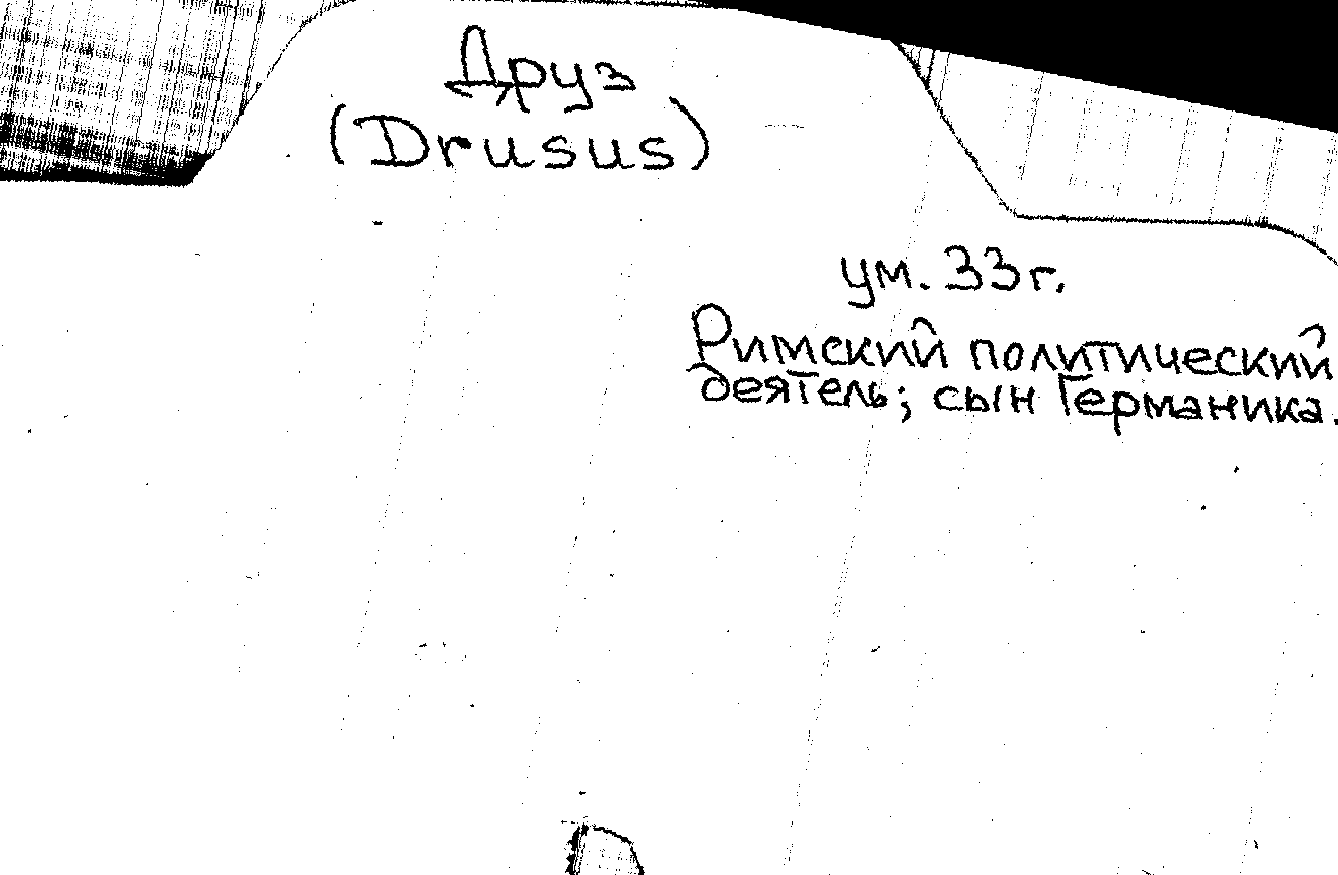 Друз
(Drusus)
ум. 33г.
Римский политический
деятель; сын Германика.